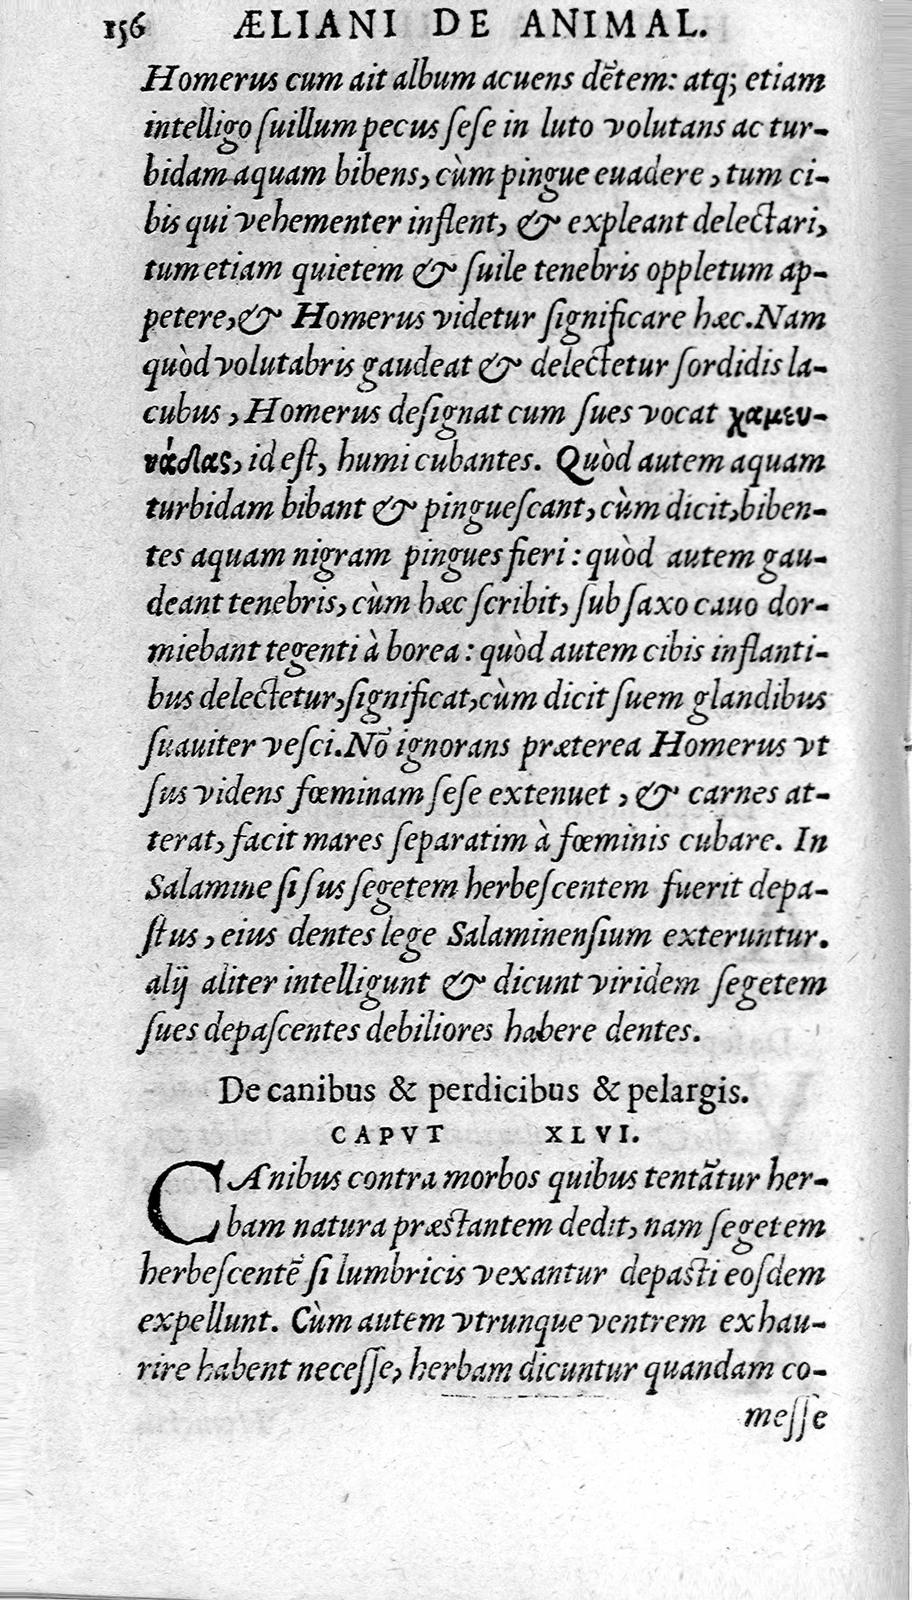 156 ÆLIANI DE ANIMAL.
Homerus cum ait album acuens dẽtem: atq; etiam
intelligo ſuillum pecus ſeſe in luto volutans ac tur-
bidam aquam bibens, cùm pingue euadere, tum ci-
bis qui vehementer inflent, & expleant delectari,
tum etiam quietem & ſuile tenebris oppletum ap-
petere, & Homerus videtur ſignificare hæc. Nam
quòd volutabris gaudeat & delectetur ſordidis la-
cubus, Homerus deſignat cum ſues vocat χαμευ-
νάδας, id eſt, humi cubantes. Quòd autem aquam
turbidam bibant & pingueſcant, cùm dicit, biben-
tes aquam nigram pingues fieri: quòd autem gau-
deant tenebris, cùm hæc ſcribit, ſub ſaxo cauo dor-
miebant tegenti à borea: quòd autem cibis inflanti-
bus delectetur, ſignificat, cùm dicit ſuem glandibus
ſuauiter veſci. Nõ ignorans præterea Homerus vt
ſus videns fœminam ſeſe extenuet, & carnes at-
terat, facit mares ſeparatim à fœminis cubare. In
Salamine ſi ſus ſegetem herbeſcentem fuerit depa-
ſtus, eius dentes lege Salaminenſium exteruntur.
alij aliter intelligunt & dicunt viridem ſegetem
ſues depaſcentes debiliores habere dentes.
De canibus & perdicibus & pelargis.
CAPVT XLVI.
CAnibus contra morbos quibus tentãtur her-
bam natura præstantem dedit, nam ſegetem
herbeſcentẽ ſi lumbricis vexantur depasti eoſdem
expellunt. Cùm autem vtrunque ventrem exhau-
rire habent neceſſe, herbam dicuntur quandam co-
meſſe